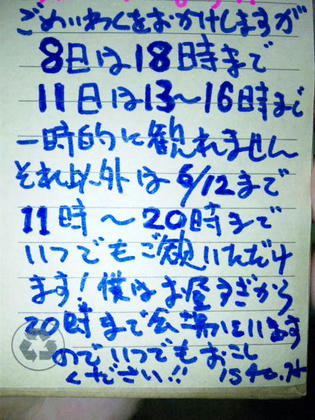 ごめいわくをおかけしますが
8日は18時まで
11日は13〜16時まで
一時的に観れません
それ以外は6/12まで
11時〜20時まで
いつでもご観いただけ
ます！僕はお昼すぎから
20時まで会場にいます
のでいつでもおこし
ください!!